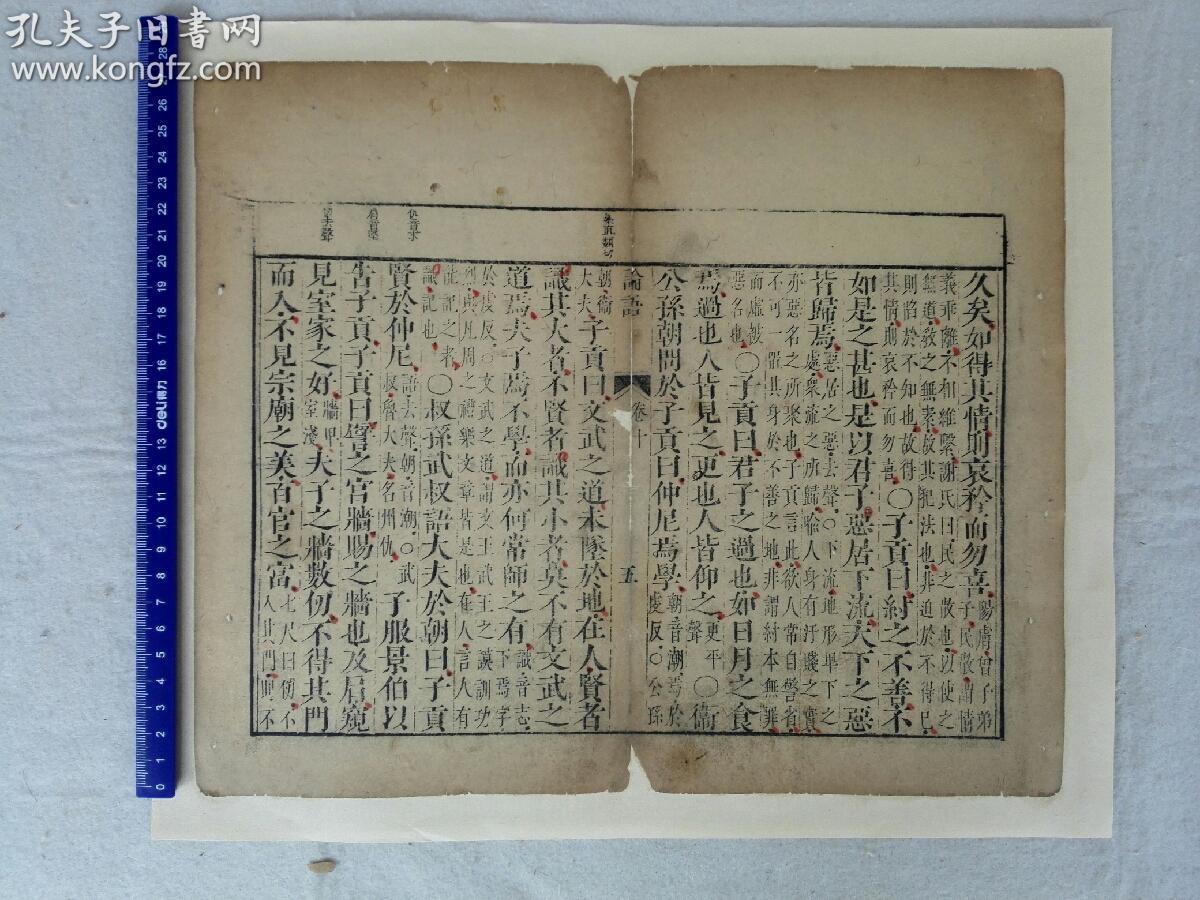 孔夫子旧书网
www.kongfz.com
久矣如得其情則哀矜而勿喜陽膚曾子弟子民散謂情
義乖離不相維繫謝氏曰民之散也以使之無道教之無素故其犯法也非迫於不得已
則陷於不知也故得其情則哀矜而勿喜〇子貢曰紂之不善不
如是之甚也是以君子惡居下流天下之惡
皆歸焉惡居之惡去聲〇下流地形卑下之處衆流之所歸喻人身有汙賤之實
亦惡名之所聚也子貢言此欲人常自警省不可一置其身於不善之地非謂紂本無罪
而虛被惡名也〇子貢曰君子之過也如日月之食
焉過也人皆見之更也人皆仰之更平聲〇衛
公孫朝問於子貢曰仲尼焉學朝音潮焉於虔反〇公孫
論語 卷十 五
朝衛大夫子貢曰文武之道未墜於地在人賢者
識其大者不賢者識其小者莫不有文武之
道焉夫子焉不學而亦何常師之有識音志下焉字
於虔反〇文武之道謂文王武王之謨訓功烈與凡周之禮樂文章皆是也在人言人有
能記之者識記也〇叔孫武叔語大夫於朝曰子貢
賢於仲尼語去聲朝音潮〇武叔魯大夫名州仇子服景伯以
告子貢子貢曰譬之宮牆賜之牆也及肩窺
見室家之好牆卑室淺夫子之牆數仞不得其門
而入不見宗廟之美百官之富七尺曰仞不入其門則不
deli得力
0 1 2 3 4 5 6 7 8 9 10 11 12 13 14 15 16 17 18 19 20 21 22 23 24 25 26 27 28